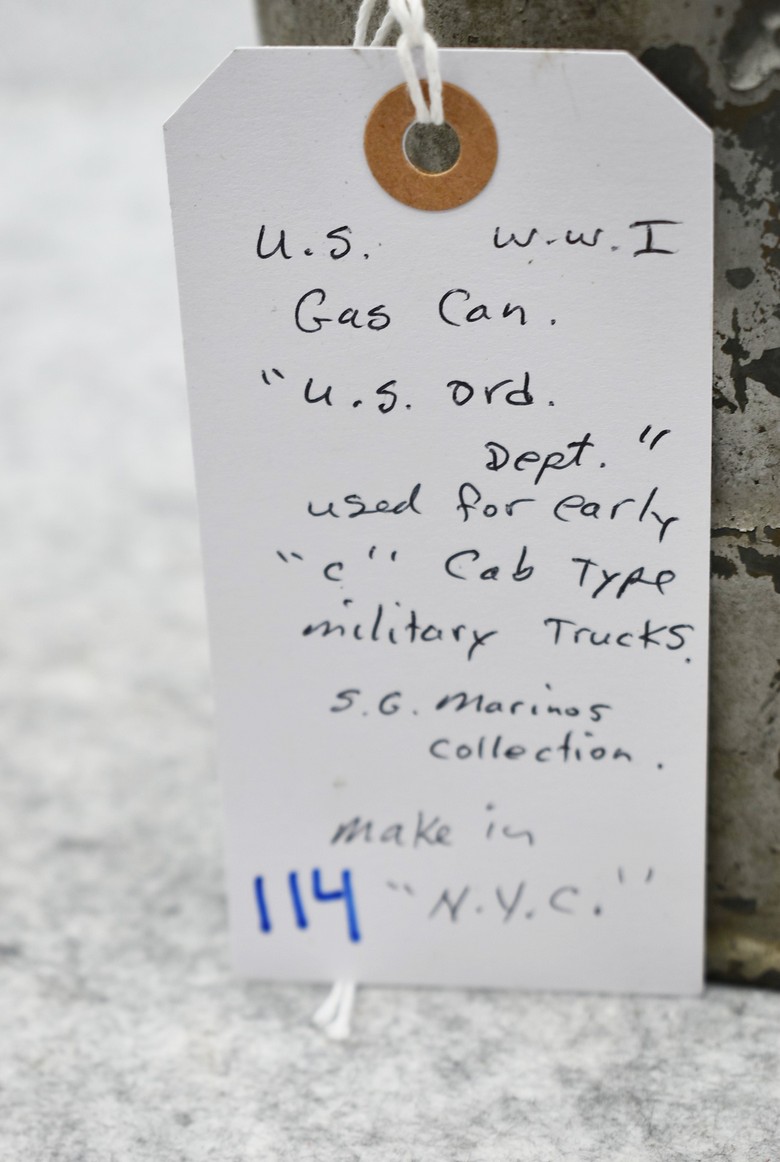 U.S. W.W.I
Gas Can.
"U.S. Ord.
Dept."
used for early
"C" Cab Type
military Trucks.
S.G. Marinos
collection.
make in
114 "N.Y.C."